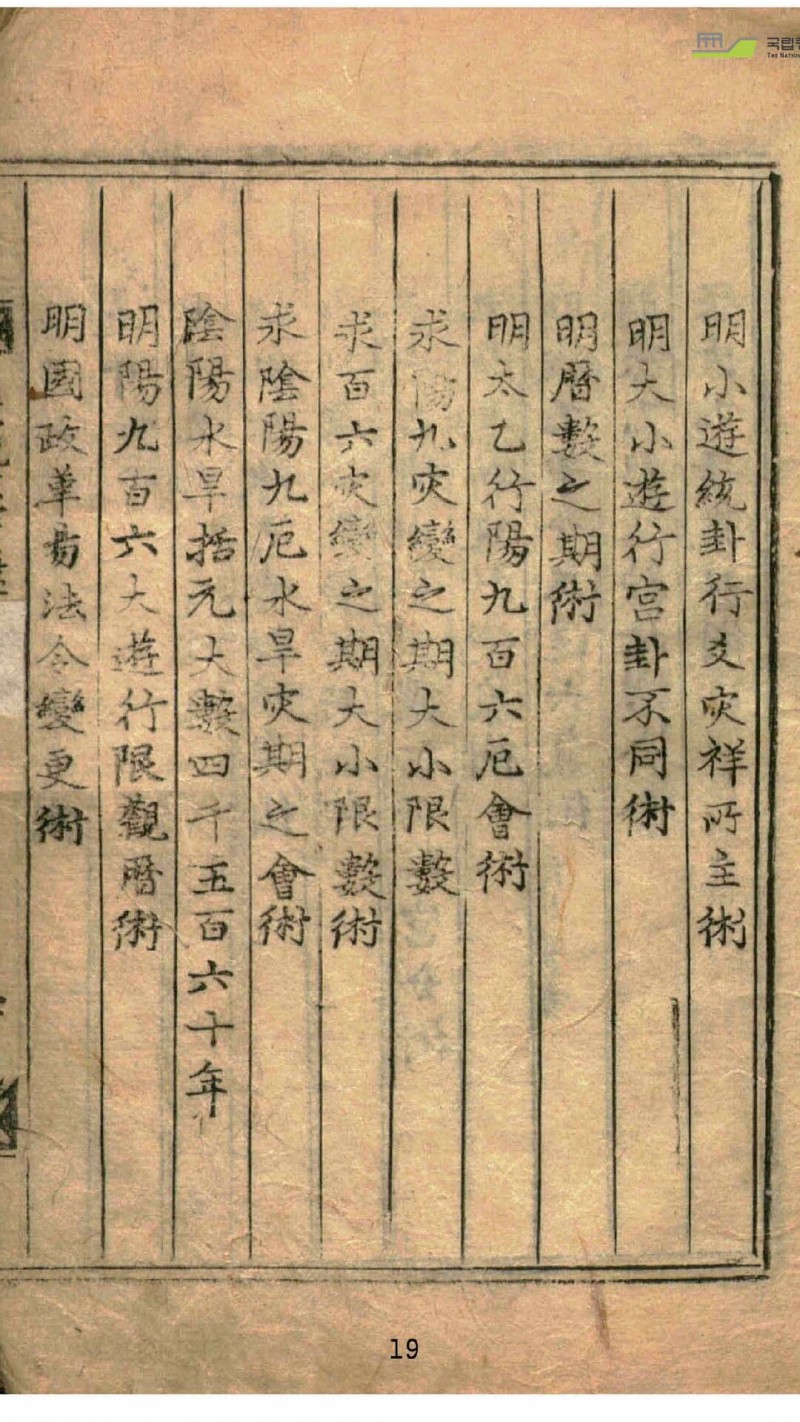 明小遊統卦行爻灾祥所主術
明大小遊行宮卦不同術
明曆數之期術
明太乙行陽九百六厄會術
求陽九灾變之期大小限數
求百六灾變之期大小限數術
求陰陽九厄水旱灾期之會術
陰陽水旱括元大數四千五百六十年
明陽九百六大遊行限觀曆術
明國政革易法令變更術
국립
THE NATION
19